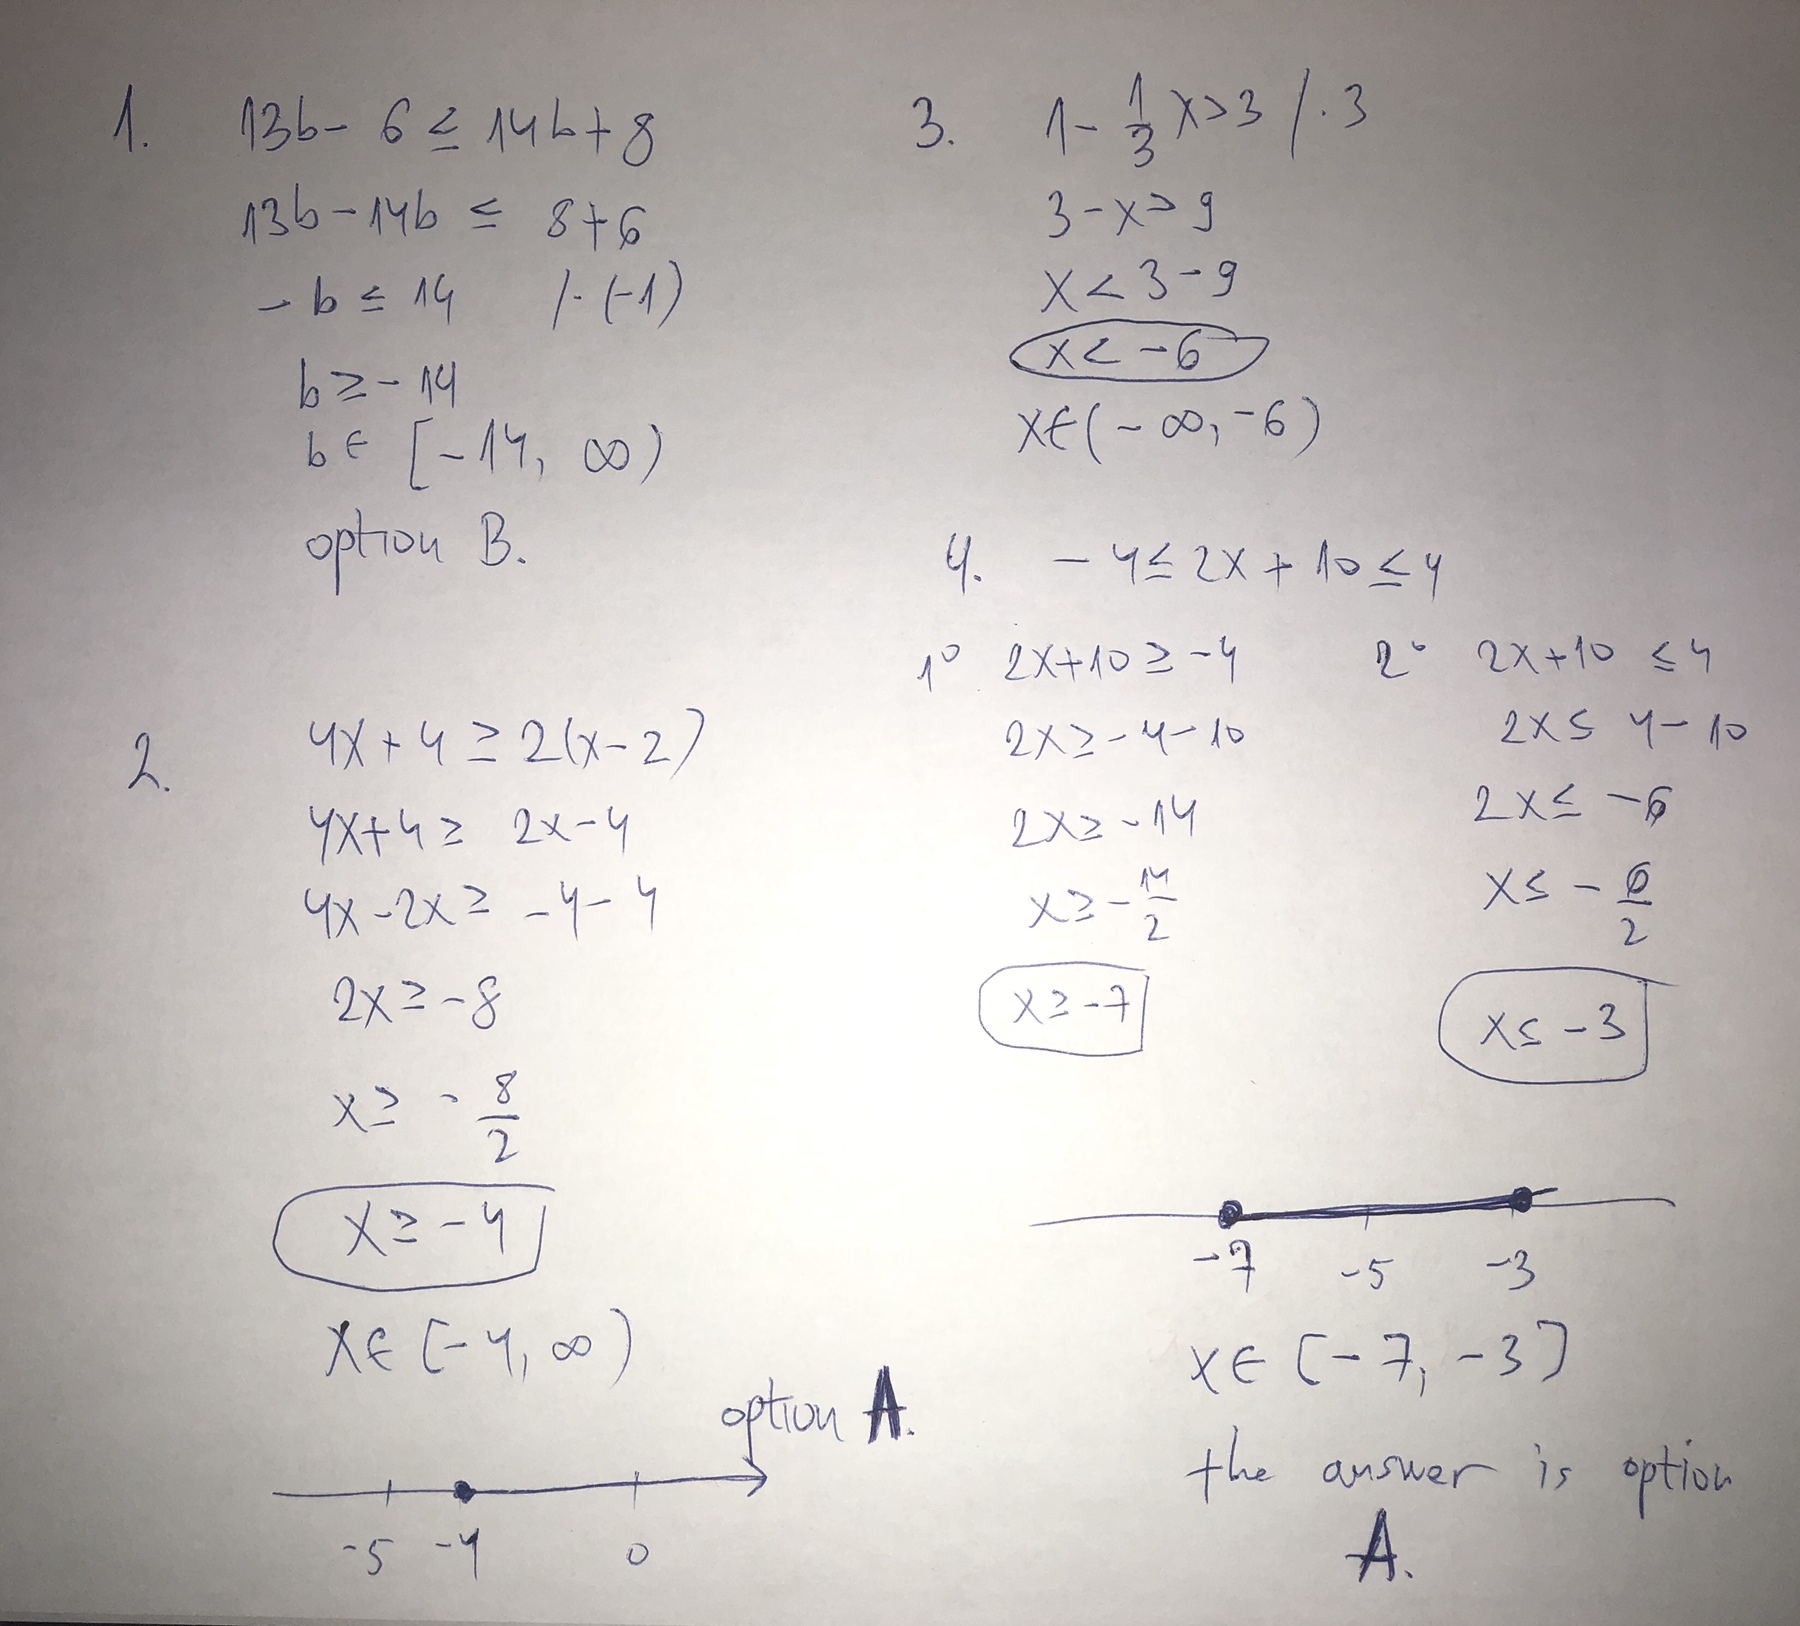 1. 13b - 6 ≤ 14b + 8
13b - 14b ≤ 8 + 6
- b ≤ 14 /· (-1)
b ≥ - 14
b ∈ [-14, ∞)
option B.
2. 4x + 4 ≥ 2(x - 2)
4x + 4 ≥ 2x - 4
4x - 2x ≥ -4 - 4
2x ≥ -8
x ≥ - 8/2
x ≥ -4
x ∈ [-4, ∞)
option A.
-5 -4 0
3. 1 - 1/3 x > 3 /· 3
3 - x > 9
x < 3 - 9
x < -6
x ∈ (-∞, -6)
4. -4 ≤ 2x + 10 ≤ 4
1° 2x + 10 ≥ -4
2x ≥ -4 - 10
2x ≥ -14
x ≥ - 14/2
x ≥ -7
2° 2x + 10 ≤ 4
2x ≤ 4 - 10
2x ≤ -6
x ≤ - 6/2
x ≤ -3
-7 -5 -3
x ∈ [-7, -3]
the answer is option
A.